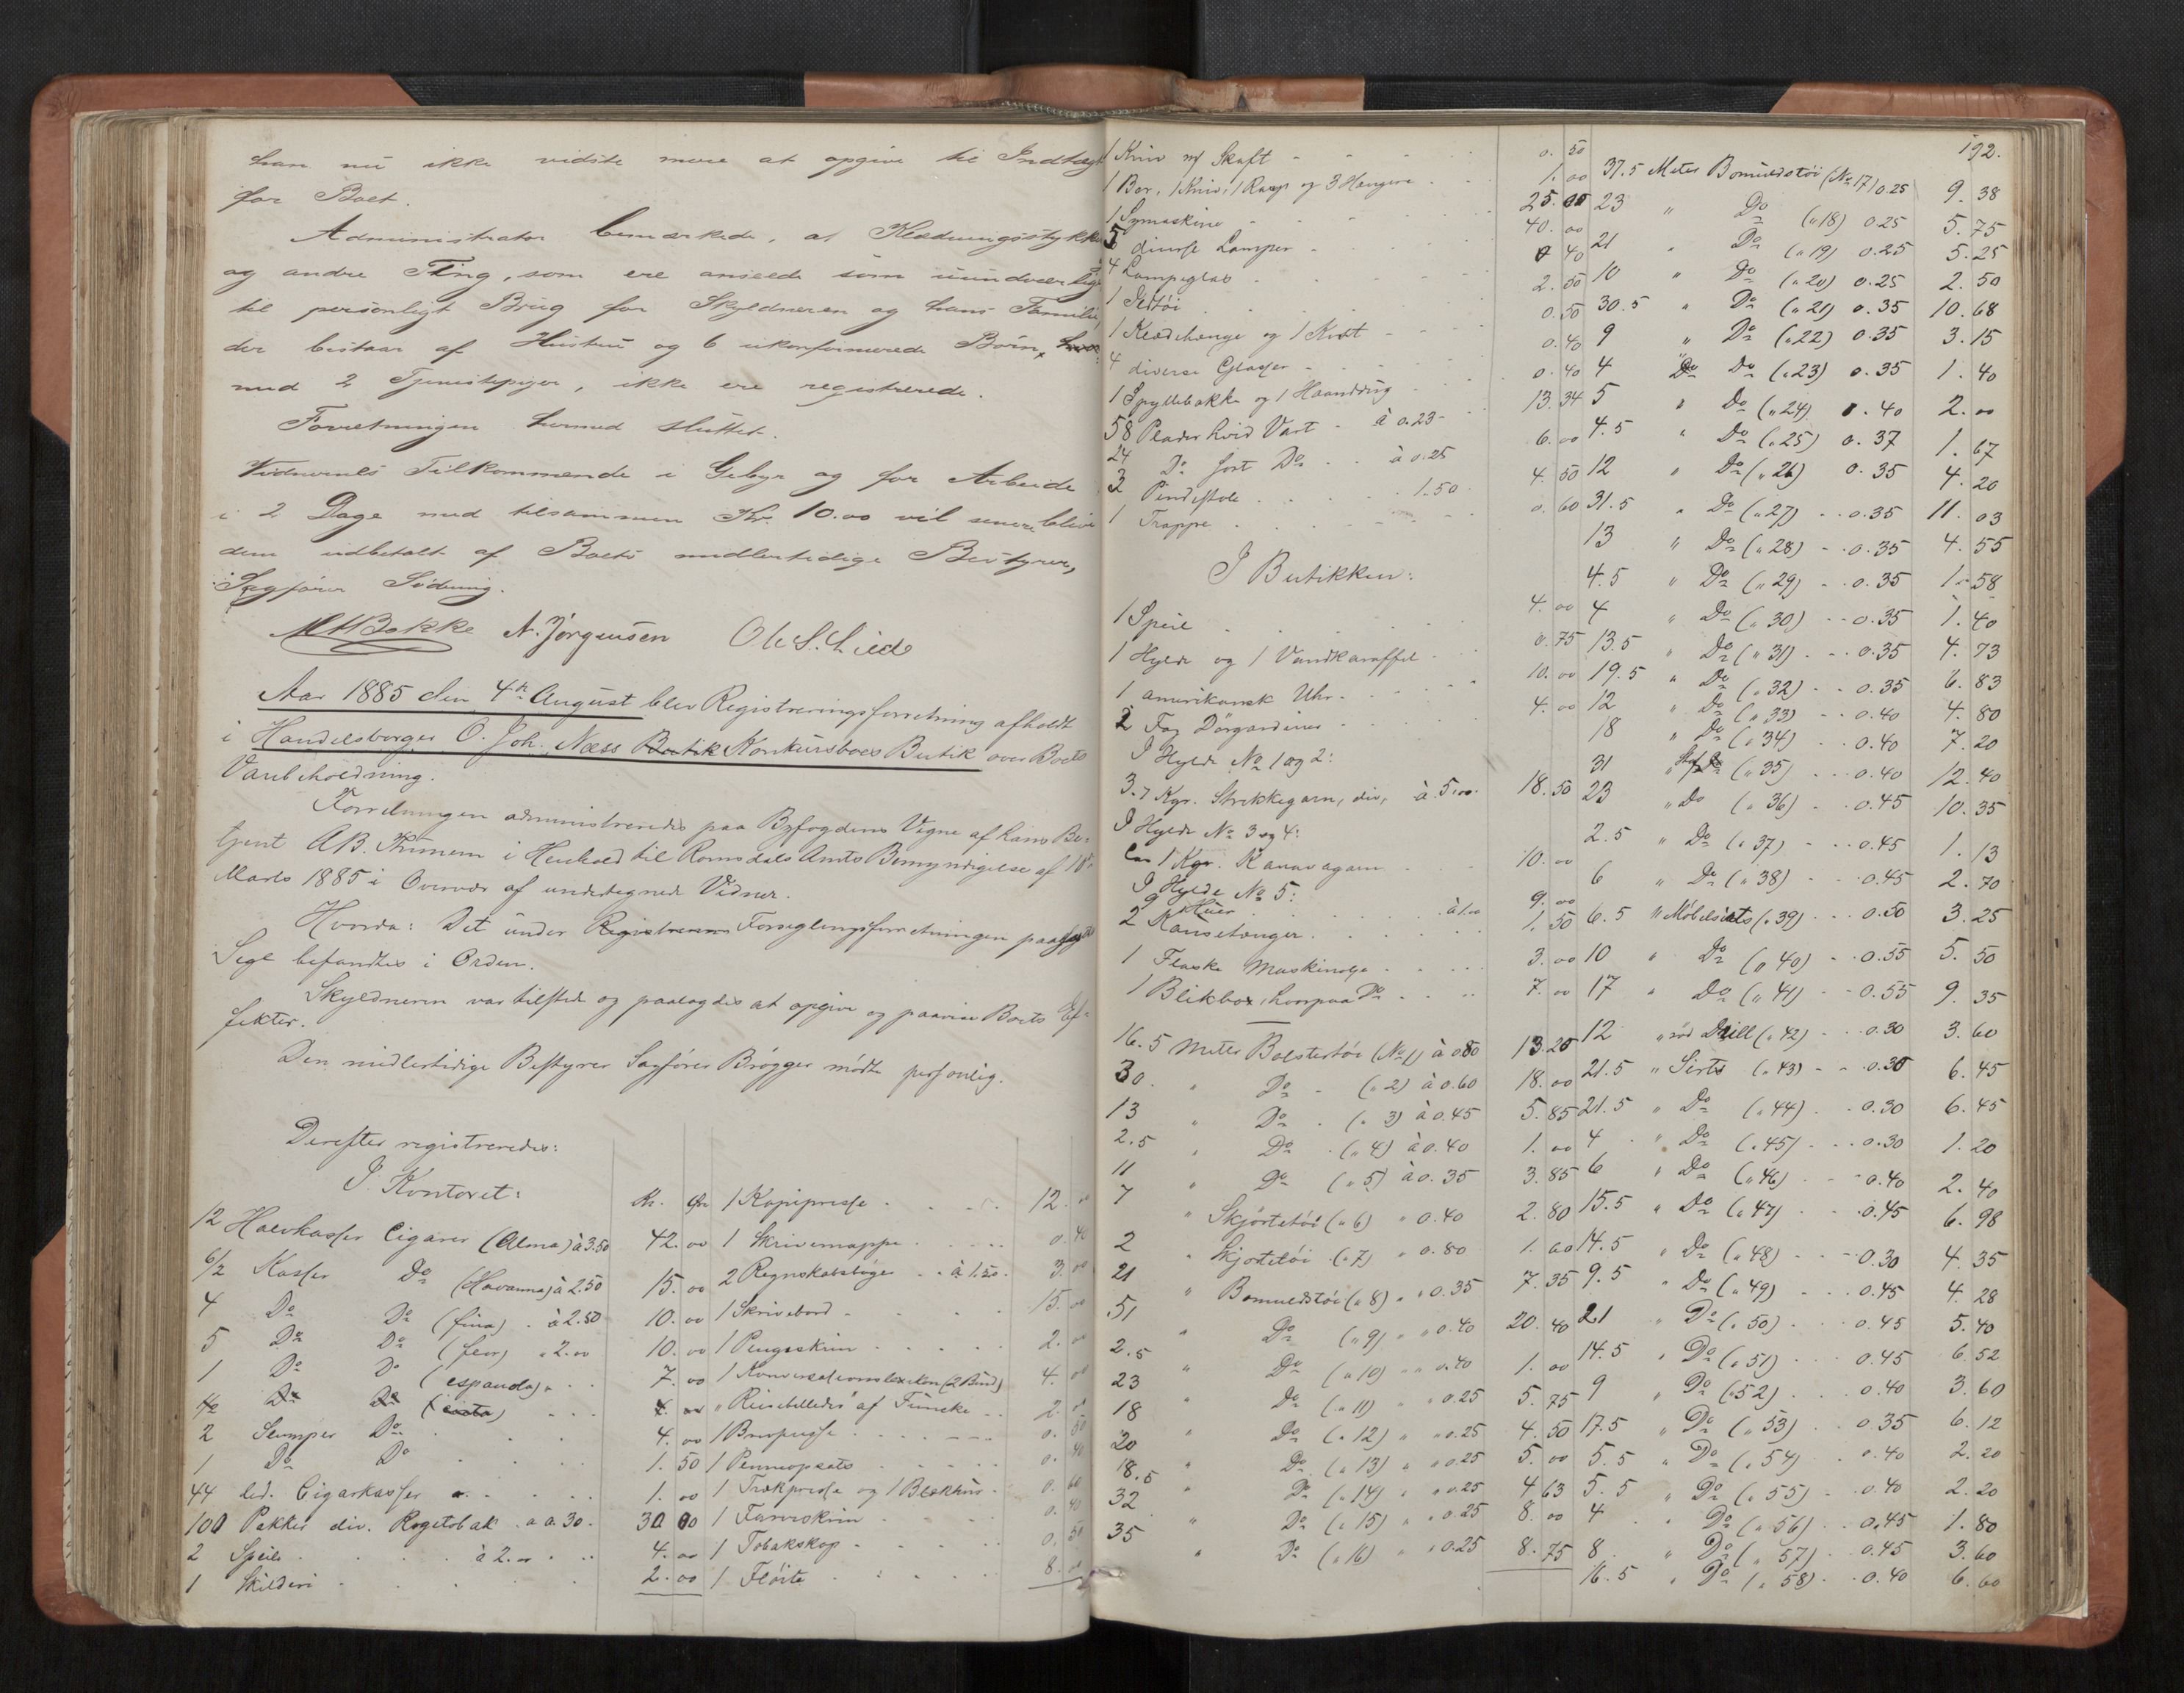 han nu ikke vidste mere at opgive til Indtægt
for Boet.
Administrator bemærkede, at Klædningsstykker
og andre Ting, som ere anseede som uundværlige
til personligt Brug for Skyldneren og hans Familie,
der bestaar af Hustru og 6 ukonfirmerede Børn,
med 2 Tjenestepiger, ikke ere registrerede.
Forretningen hermed sluttet.
Vidnernes Tilkommende i Gebyr og for Arbeide
i 2 Dage med tilsammen Kr. 10.00 vil senere blive
dem udbetalt af Boets midlertidige Bestyrer,
Sagfører Sødring.
N. Jørgensen Ole S. Lied
Aar 1885 den 4de August blev Registreringsforretning afholdt
i Handelsborger O. Joh. Næss Butik Konkursboes Butik over Boets
Varebeholdning.
Forretningen administreredes paa Byfogdens Vegne af hans Be-
tjent i Henhold til Romsdals Amts Bemyndigelse af
Marts 1885 i Overvær af undertegnede Vidner.
Hvorda: Det under Forseglingsforretningen
Segl befandtes i Orden.
Skyldneren var tilstede og paalagdes at opgive og paavise Boets Ef-
fekter.
Den midlertidige Bestyrer Sagfører Brøgger mødte personlig.
Derefter registreredes:
I Kontoret:
Kr. Øre
12 Halvkasser Cigarer (Alma) à 3.50 42.00
6/2 Kasser Do (Havanna) à 2.50 15.00
4 Do Do (fina) à 2.50 10.00
5 Do Do (flor) " 2.00 10.00
1 Do Do (espanola) 7.00
Do Do
2 Slumper Do 4.00
1 Do Do 1.50
44 led. Cigarkasser 1.00
100 Pakker div. Røgetobak à 0.30 30.00
2 Speile à 2.00 4.00
1 Skilderi 2.00
1 Kopipresse 12.00
1 Skrivemappe 0.40
2 Regnskabsbøger à 1.50 3.00
1 Skrivebord 15.00
1 Pengeskrin 2.00
1 Konversationslexikon (2 Bind) 4.00
"Reisebilleder" af Funcke 2.00
1 0.50
1 Penneopsats 0.40
1 Trækpresse og 1 Blækhus 0.60
1 Farveskrin 0.40
1 Tobakskop 0.50
1 Fløite 8.00
192.
1 Kniv m/ Skaft 0.50
1 Bor, 1 Kniv, 1 Rasp og 3 Hængere 1.00
1 Symaskine 25.00
5 diverse Lamper 40.00
4 Lampeglas 0.40
1 Ildtøi 2.50
1 Klædehænge og 1 Kost 0.50
4 diverse Glasser 0.40
1 Spyttebakke og 1 Haanddug 0.40
58 Plader hvid Vatt à 0.23 13.34
24 Do sort Do à 0.25 6.00
3 Pindestole 1.50 4.50
1 Trappe 0.60
I Butikken:
1 Speil 4.00
1 Hylde og 1 Vandkaraffel 0.75
1 amerikansk Uhr 10.00
2 Fag Dørgardiner 4.00
I Hylde No 1 og 2:
3.7 Kgr. Strikkegarn, div, à 5.00 18.50
I Hylde No 3 og 4:
ca 1 Kgr. Kanavagarn 10.00
I Hylde No 5:
9 Huer à 1.00 9.00
2 1.50
1 Flaske Maskinolje 3.00
1 Blikbox, hvorpaa Do 7.00
16.5 Meter Bolstertøi (No 1) à 0.80 13.20
30 " Do (" 2) à 0.60 18.00
13 " Do (" 3) à 0.45 5.85
2.5 " Do (" 4) à 0.40 1.00
11 " Do (" 5) à 0.35 3.85
7 " Skjørtetøi (" 6) " 0.40 2.80
2 " Skjortetøi (" 7) " 0.80 1.60
21 " Bomuldstøi (" 8) " 0.35 7.35
51 " Do (" 9) " 0.40 20.40
2.5 " Do (" 10) " 0.40 1.00
23 " Do (" 11) " 0.25 5.75
18 " Do (" 12) " 0.25 4.50
20 " Do (" 13) " 0.25 5.00
18.5 " Do (" 14) " 0.25 4.63
32 " Do (" 15) " 0.25 8.00
35 " Do (" 16) " 0.25 8.75
37.5 Meter Bomuldstøi (No 17) 0.25 9.38
23 " Do (" 18) 0.25 5.75
21 " Do (" 19) 0.25 5.25
10 " Do (" 20) 0.25 2.50
30.5 " Do (" 21) 0.35 10.68
9 " Do (" 22) 0.35 3.15
4 Do Do (" 23) 0.35 1.40
5 " Do (" 24) 0.40 2.00
4.5 " Do (" 25) 0.37 1.67
12 " Do (" 26) 0.35 4.20
31.5 " Do (" 27) 0.35 11.03
13 " Do (" 28) 0.35 4.55
4.5 " Do (" 29) 0.35 1.58
4 " Do (" 30) 0.35 1.40
13.5 " Do (" 31) 0.35 4.73
19.5 " Do (" 32) 0.35 6.83
12 " Do (" 33) 0.40 4.80
18 " Do (" 34) 0.40 7.20
31 " (" 35) 0.40 12.40
23 " Do (" 36) 0.45 10.35
2.5 " Do (" 37) 0.45 1.13
6 " Do (" 38) 0.45 2.70
6.5 " Møbelsirts (" 39) 0.50 3.25
10 " Do (" 40) 0.55 5.50
17 " Do (" 41) 0.55 9.35
12 " rød Drill (" 42) 0.30 3.60
21.5 " Sirts (" 43) 0.30 6.45
21.5 " Do (" 44) 0.30 6.45
4 " Do (" 45) 0.30 1.20
6 " Do (" 46) 0.40 2.40
15.5 " Do (" 47) 0.45 6.98
14.5 " Do (" 48) 0.30 4.35
9.5 " Do (" 49) 0.45 4.28
21 " Do (" 50) 0.45 5.40
14.5 " Do (" 51) 0.45 6.52
9 " Do (" 52) 0.40 3.60
17.5 " Do (" 53) 0.35 6.12
5.5 " Do (" 54) 0.40 2.20
5.5 " Do (" 55) 0.40 2.20
4 " Do (" 56) 0.45 1.80
8 " Do (" 57) 0.45 3.60
16.5 " Do (" 58) 0.40 6.60